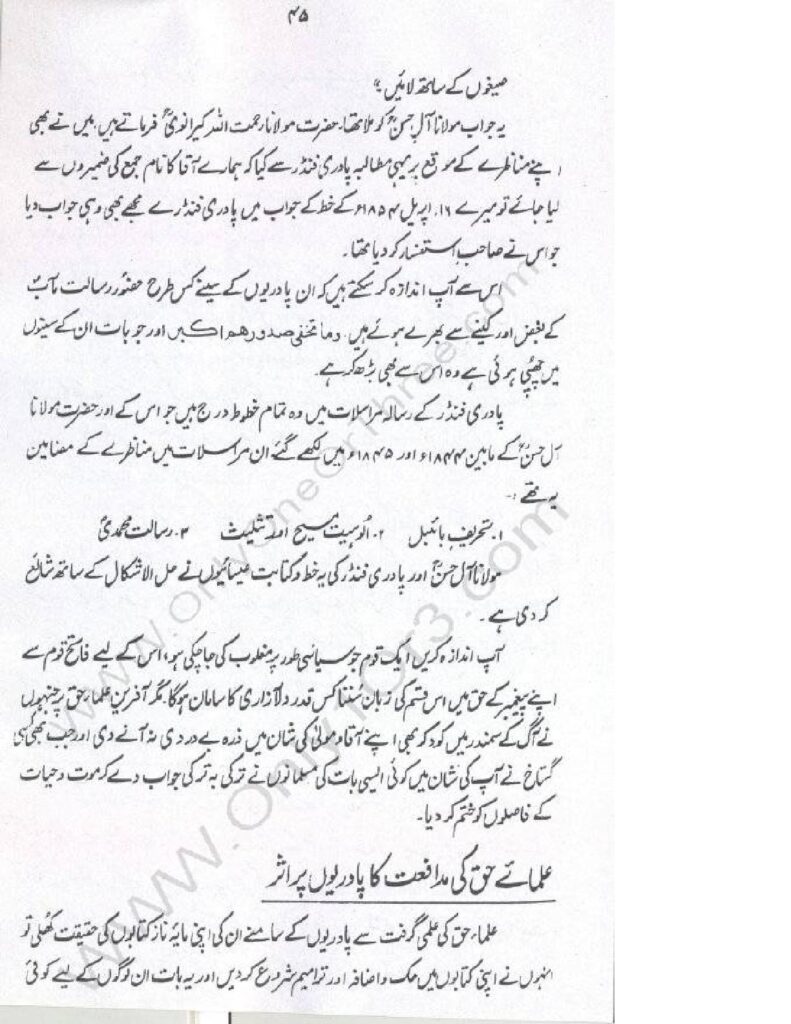 ۴۵
صیغوں کے ساتھ لائیں"
یہ جواب مولانا آل حسنؒ کو ملا تھا۔ حضرت مولانا رحمت اللہ کیرانویؒ فرماتے ہیں، میں نے بھی
اپنے مناظرے کے موقع پر یہی مطالبہ پادری فنڈر سے کیا کہ ہمارے آقا کا نام جمع کی ضمیروں سے
لیا جائے تو میرے ۱۶، اپریل ۱۸۵۴ء کے خط کے جواب میں پادری فنڈر نے مجھے بھی وہی جواب دیا
جو اس نے صاحب استفسار کو دیا تھا۔
اس سے آپ اندازہ کر سکتے ہیں کہ ان پادریوں کے سینے کس طرح حضور رسالت مآبؐ
کے بغض اور کینے سے بھرے ہوئے ہیں۔ وما تخفی صدورھم اکبر اور جو بات ان کے سینوں
میں چھپی ہوئی ہے وہ اس سے بھی بڑھ کر ہے۔
پادری فنڈر کے رسالہ مراسلات میں وہ تمام خطوط درج ہیں جو اس کے اور حضرت مولانا
آل حسنؒ کے مابین ۱۸۴۴ء اور ۱۸۴۵ء میں لکھے گئے ان مراسلات میں مناظرے کے مضامین
یہ تھے :۔
۱۔ تحریف بائبل ۲۔ الوہیت مسیح اور تثلیث ۳۔ رسالت محمدیؐ
مولانا آل حسنؒ اور پادری فنڈر کی یہ خط و کتابت عیسائیوں نے حل الاشکال کے ساتھ شائع
کر دی ہے۔
آپ اندازہ کریں ایک قوم جو سیاسی طور پر مغلوب کی جا چکی ہو، اس کے لیے فاتح قوم سے
اپنے پیغمبر کے حق میں اس قسم کی زبان سننا کس قدر دلآزاری کا سامان ہوگا۔ مگر آفرین علماء حق پر جنہوں
نے آگ کے سمندر میں کود کر بھی اپنے آقا و مولیٰ کی شان میں ذرہ بے دردی نہ آنے دی اور جب بھی کسی
گستاخ نے آپ کی شان میں کوئی ایسی بات کی مسلمانوں نے ترکی بہ ترکی جواب دے کر موت و حیات
کے فاصلوں کو ختم کر دیا۔
علمائے حق کی مدافعت کا پادریوں پر اثر
علماء حق کی علمی گرفت سے پادریوں کے سامنے ان کی اپنی مایہ ناز کتابوں کی حقیقت کھلی تو
انہوں نے اپنی کتابوں میں حک و اضافہ اور ترامیم شروع کر دیں اور یہ بات ان لوگوں کے لیے کوئی
www.OnlyOneOrThree.com
www.Only1Or3.com